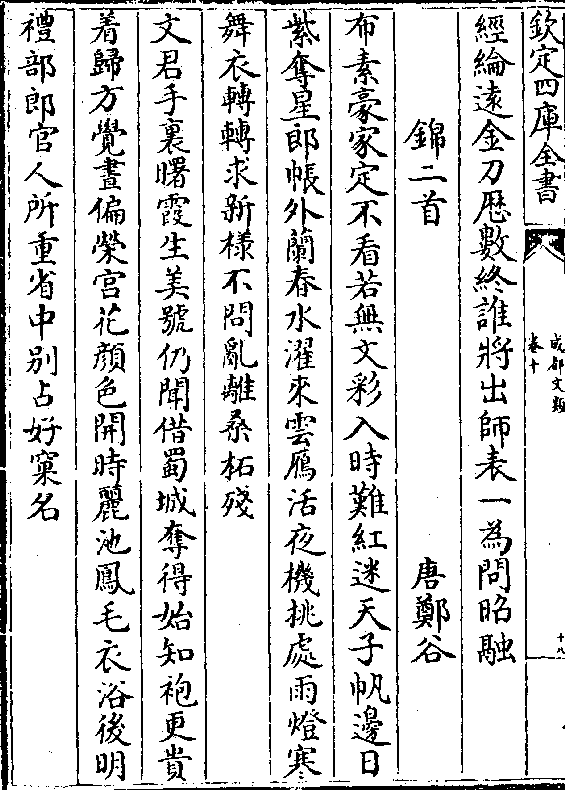 欽定四庫全書
成都文類
卷十
十八
經綸遠金刀厯數終誰將出師表一為問昭融
錦二首 唐鄭谷
布素豪家定不看若無文彩入時難紅迷天子帆邊日
紫奪星郎帳外蘭春水濯來雲鴈活夜機挑處雨燈寒
舞衣轉轉求新様不問亂離桑柘殘
文君手裏曙霞生美號仍聞借蜀城奪得始知袍更貴
着歸方覺晝偏榮宫花顔色開時麗池鳳毛衣浴後明
禮部郎官人所重省中别占好窠名